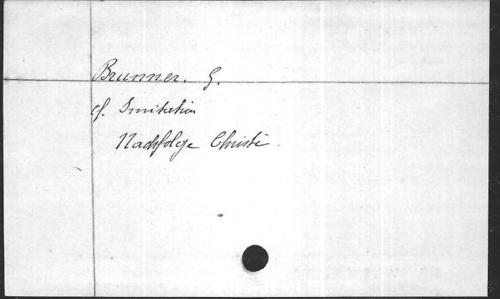 Brunner, G.
cf. Imitation
Nachfolge Christi.